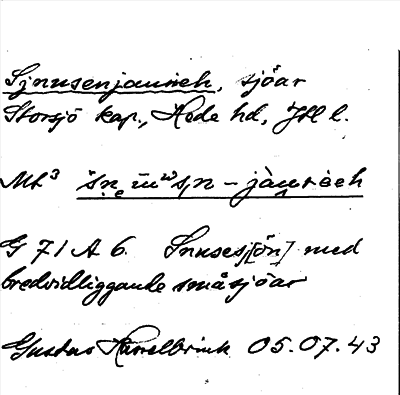 Sjnusenjaurieh, sjöar
Storsjö kap., Hede hd, Jtl l.
Mt³
G 71 A b. Snuses[jön] med
bredvidliggande småsjöar
Gustav Hasselbrink 05.07.43